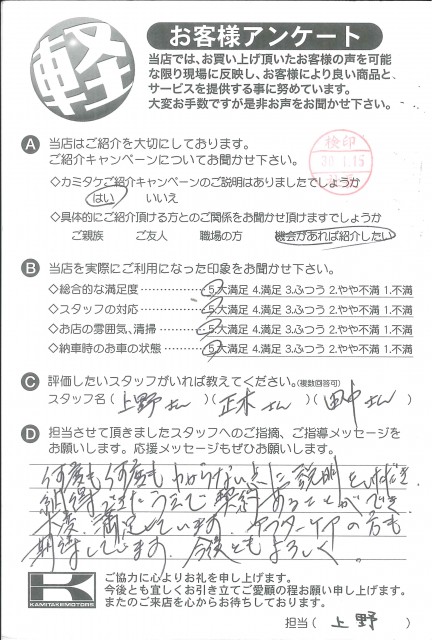 軽
お客様アンケート
当店では、お買い上げ頂いたお客様の声を可能
な限り現場に反映し、お客様により良い商品と、
サービスを提供する事に努めています。
大変お手数ですが是非お声をお聞かせ下さい。
A 当店はご紹介を大切にしております。
ご紹介キャンペーンについてお聞かせ下さい。
検印
30.1.15
◇カミタケご紹介キャンペーンのご説明はありましたでしょうか
はい いいえ
◇具体的にご紹介頂ける方とのご関係をお聞かせ頂けますでしょうか
ご親族 ご友人 職場の方 機会があれば紹介したい
B 当店を実際にご利用になった印象をお聞かせ下さい。
◇総合的な満足度 5.大満足 4.満足 3.ふつう 2.やや不満 1.不満
◇スタッフの対応 5.大満足 4.満足 3.ふつう 2.やや不満 1.不満
◇お店の雰囲気、清掃 5.大満足 4.満足 3.ふつう 2.やや不満 1.不満
◇納車時のお車の状態 5.大満足 4.満足 3.ふつう 2.やや不満 1.不満
C 評価したいスタッフがいれば教えてください。(複数回答可)
スタッフ名(上野さん)(正木さん)(田中さん)
D 担当させて頂きましたスタッフへのご指摘、ご指導メッセージを
お願いします。応援メッセージもぜひお願いします。
何度も何度もわからない点に説明をいただき
納得できたうえで契約することができ
大変満足しています。アフターケアの方も
期待しています。今後ともよろしく
K
KAMITAKEMOTORS
ご協力に心よりお礼を申し上げます。
今後とも宜しくお引き立てご愛顧の程お願い申し上げます。
またのご来店を心からお待ちしております。
担当(上野)